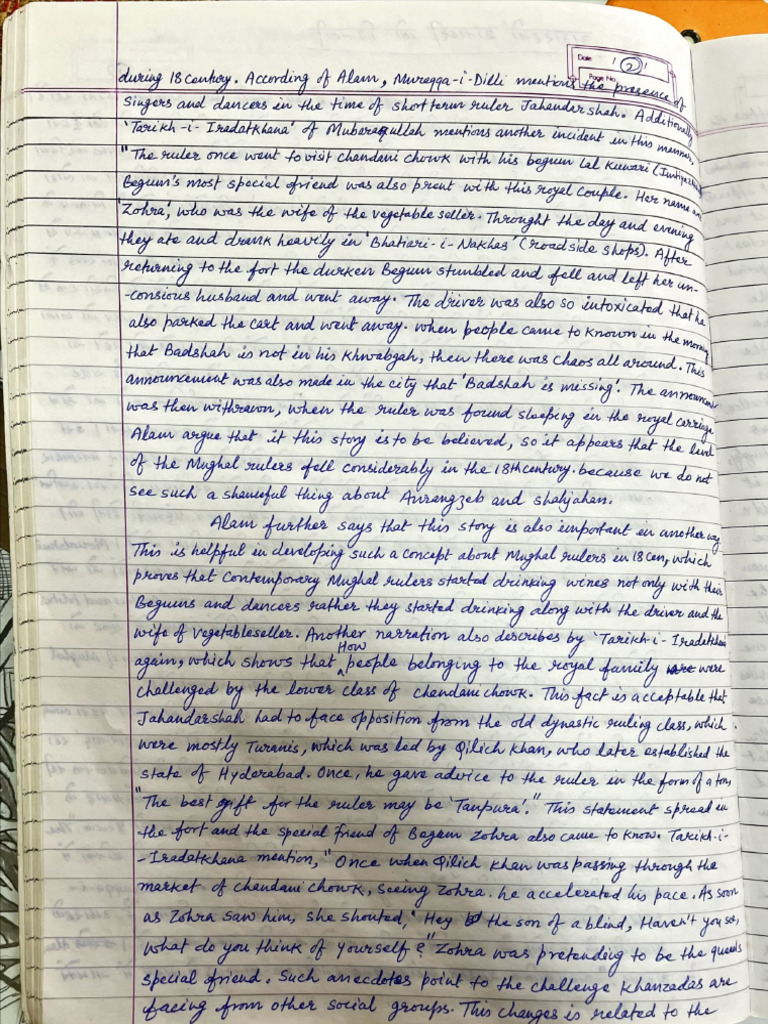 Date / 2 /
Page No.
during 18 Century. According of Alam, Mureqqa-i-Dilli mentions the presence of
Singers and dancers in the time of short term ruler Jahandar shah. Additionally
'Tarikh-i-Iradatkhana' of Mubaraqullah mentions another incident in this manner.
"The ruler once went to visit chandani chowk with his begum Lal Kuwari (Imtiyaz
Begum's most special friend was also prent with this royal couple. Her name
'Zohra', who was the wife of the vegetable seller. Throught the day and evening
they ate and drank heavily in 'Bhatiari-i-Nakhas' (roadside shops). After
returning to the fort the durken Begum stumbled and fell and left her un-
-consious husband and went away. The driver was also so intoxicated that he
also parked the cart and went away. when people came to known in the morning
that Badshah is not in his Khwabgah, then there was chaos all around. This
announcement was also made in the city that 'Badshah is missing'. The announce
was then withrawn, when the ruler was found sleeping in the royal carriage
Alam argue that it this story is to be believed, so it appears that the level
of the Mughal rulers fell considerably in the 18th century. because we do not
see such a shameful thing about Aurangzeb and shahjahan.
Alam further says that this story is also important in another way
This is helpful in developing such a concept about Mughal rulers in 18 cen, which
proves that Contemporary Mughal rulers started drinking wines not only with their
Begums and dancers rather they started drinking along with the driver and the
wife of vegetableseller. Another narration also describes by 'Tarikh-i-Iradatkhana
again, which shows that How people belonging to the royal family were
challenged by the lower class of chandani chowk. This fact is acceptable that
Jahandarshah had to face opposition from the old dynastic ruling class, which
were mostly Turanis, which was led by Qilich Khan, who later established the
state of Hyderabad. Once, he gave advice to the ruler in the form of a
"The best gift for the ruler may be 'Tanpura'." This statement spread in
the fort and the special friend of Begam Zohra also came to know. Tarikh-i-
-Iradatkhana mention, "Once when Qilich Khan was passing through the
market of chandani chowk, seeing Zohra. he accelerated his pace. As soon
as Zohra saw him, she shouted, 'Hey the son of a blind, Haven't you
what do you think of yourself?" Zohra was pretending to be the queens
special friend. Such anecdotes point to the challenge Khanzadas are
facing from other social groups. This changes is related to the